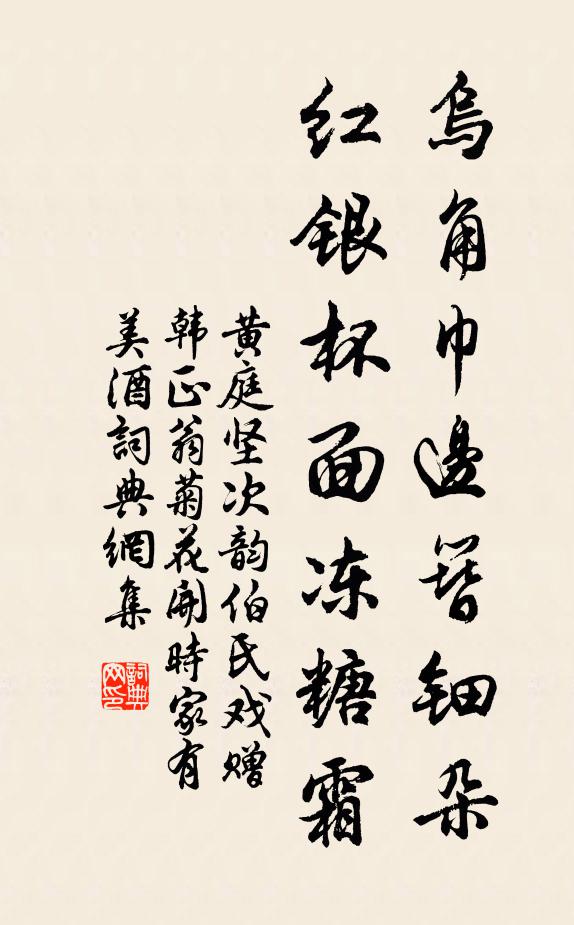 烏角巾邊簪鈿朵
红银杯面冻糖霜
黄庭坚次韵伯氏戏赠
韩正翁菊花開時家有
美酒詞典網集
詞典
网印